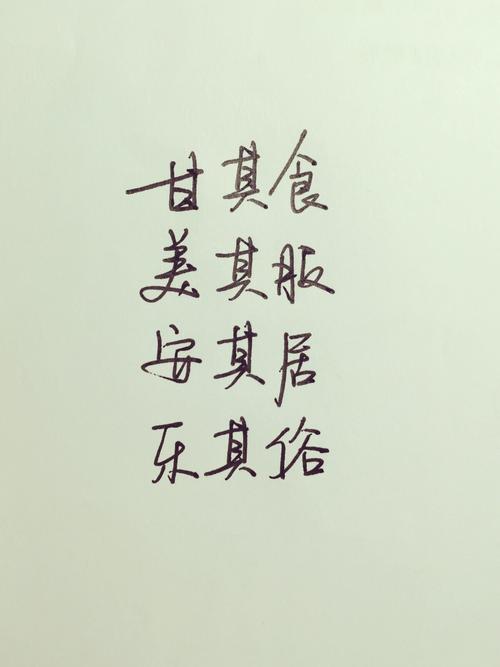 甘其食
美其服
安其居
乐其俗